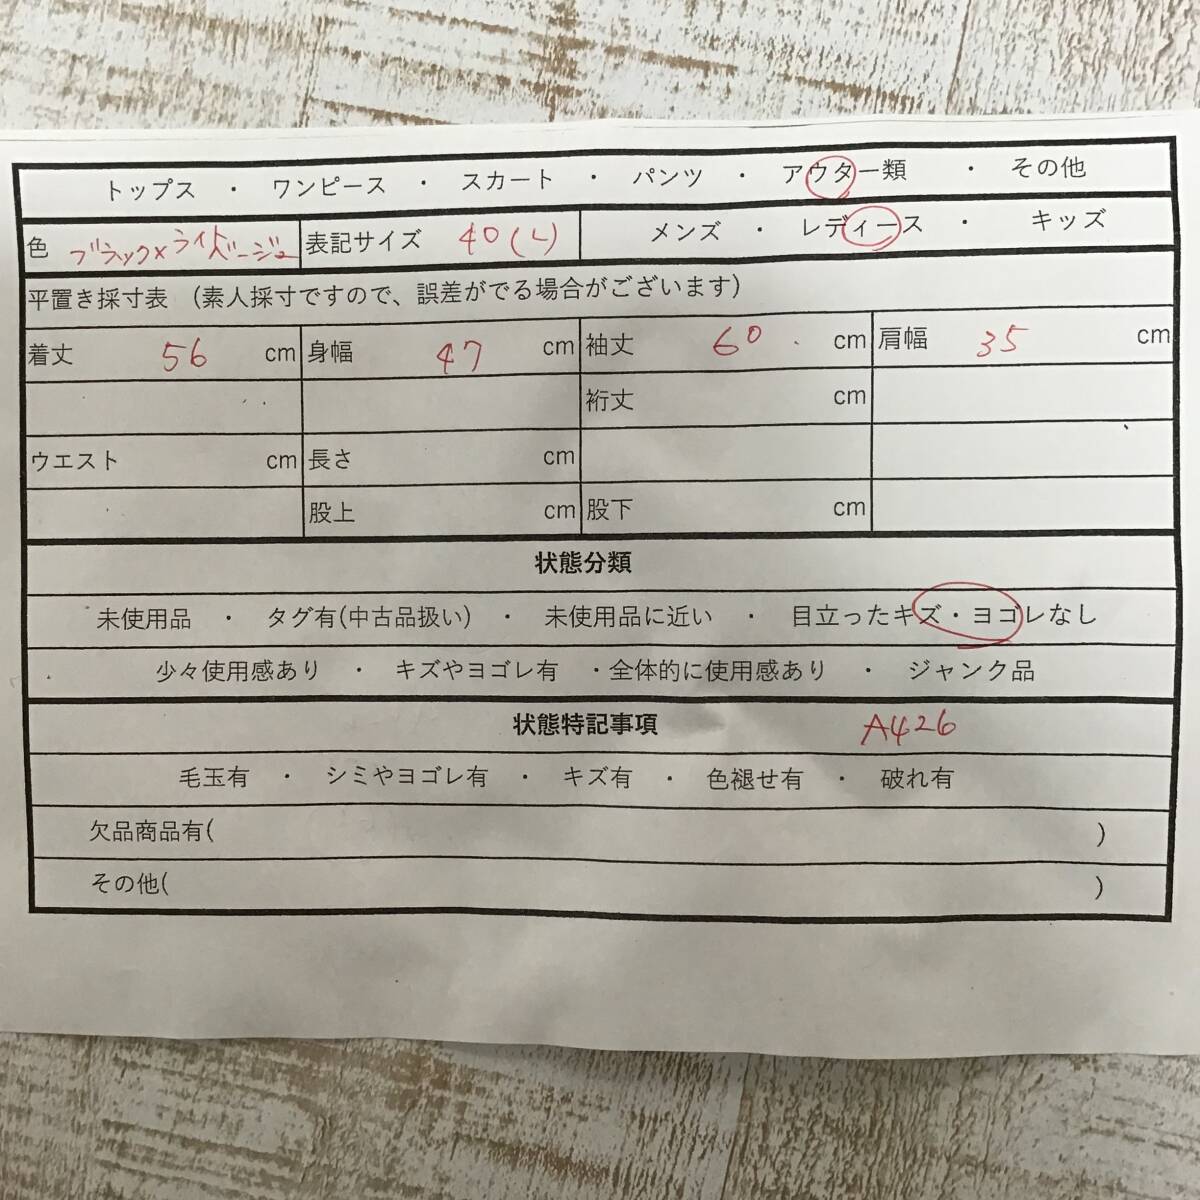 トップス ・ ワンピース ・ スカート ・ パンツ ・ アウター類 ・ その他
色 ブラック×ライトベージュ 表記サイズ 40(L) メンズ ・ レディース ・ キッズ
平置き採寸表 (素人採寸ですので、誤差がでる場合がございます)
着丈 56 cm 身幅 47 cm 袖丈 60 cm 肩幅 35 cm
裄丈 cm
ウエスト cm 長さ cm
股上 cm 股下 cm
状態分類
未使用品 ・ タグ有(中古品扱い) ・ 未使用品に近い ・ 目立ったキズ・ヨゴレなし
少々使用感あり ・ キズやヨゴレ有 ・全体的に使用感あり ・ ジャンク品
状態特記事項 A426
毛玉有 ・ シミやヨゴレ有 ・ キズ有 ・ 色褪せ有 ・ 破れ有
欠品商品有( )
その他( )